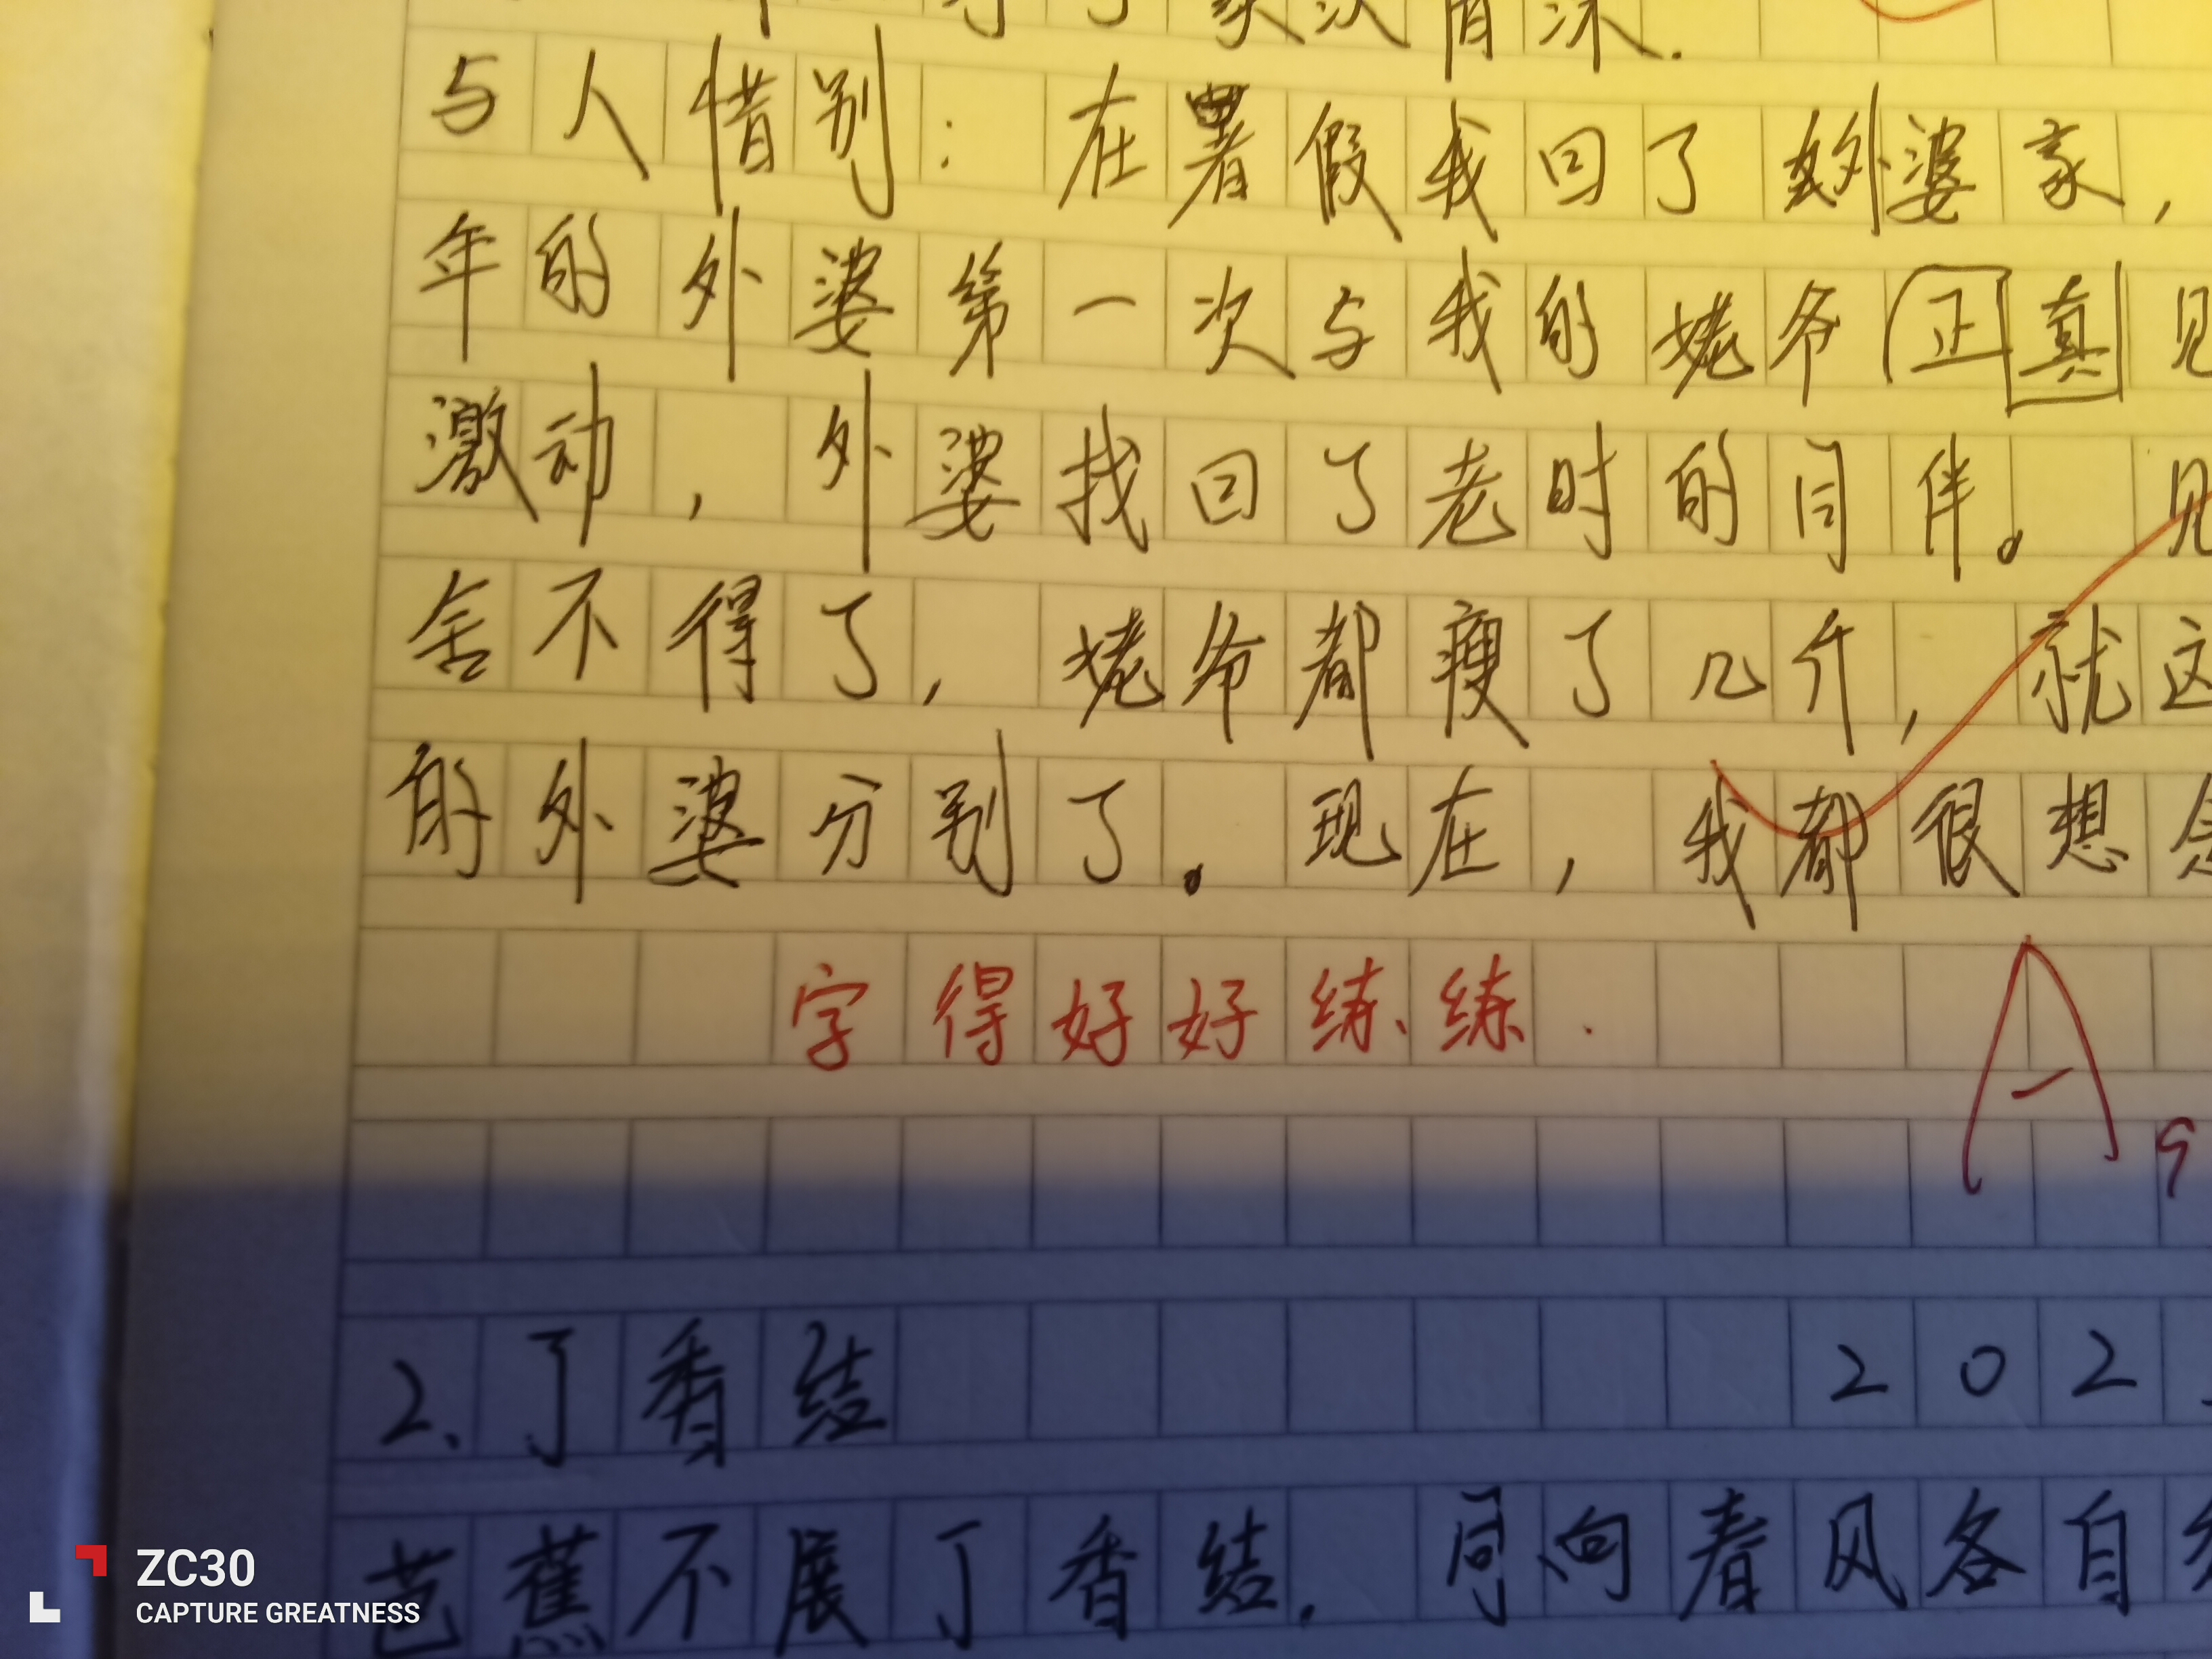 与人惜别：在署假我回了外婆家，
年的外婆第一次与我的姥爷正真见
激动，外婆找回了老时的同伴。见
舍不得了，姥爷都瘦了几斤，就这
的外婆分别了。现在，我都很想念
字得好好练练．
A
2、丁香结 202
芭蕉不展丁香结，同向春风各自
ZC30
CAPTURE GREATNESS